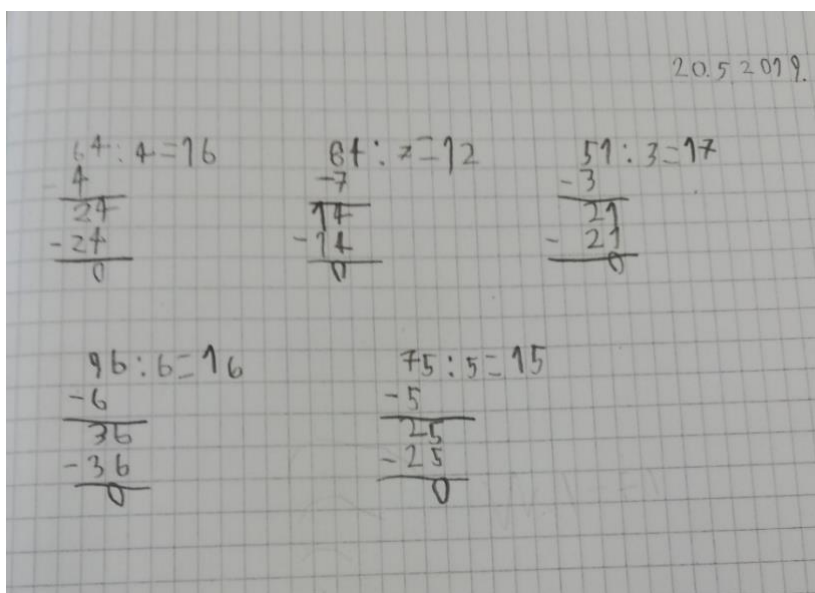 20.5.2019.
64:4=16
-4
24
-24
0
84:7=12
-7
14
-14
0
51:3=17
-3
21
-21
0
96:6=16
-6
36
-36
0
75:5=15
-5
25
-25
0